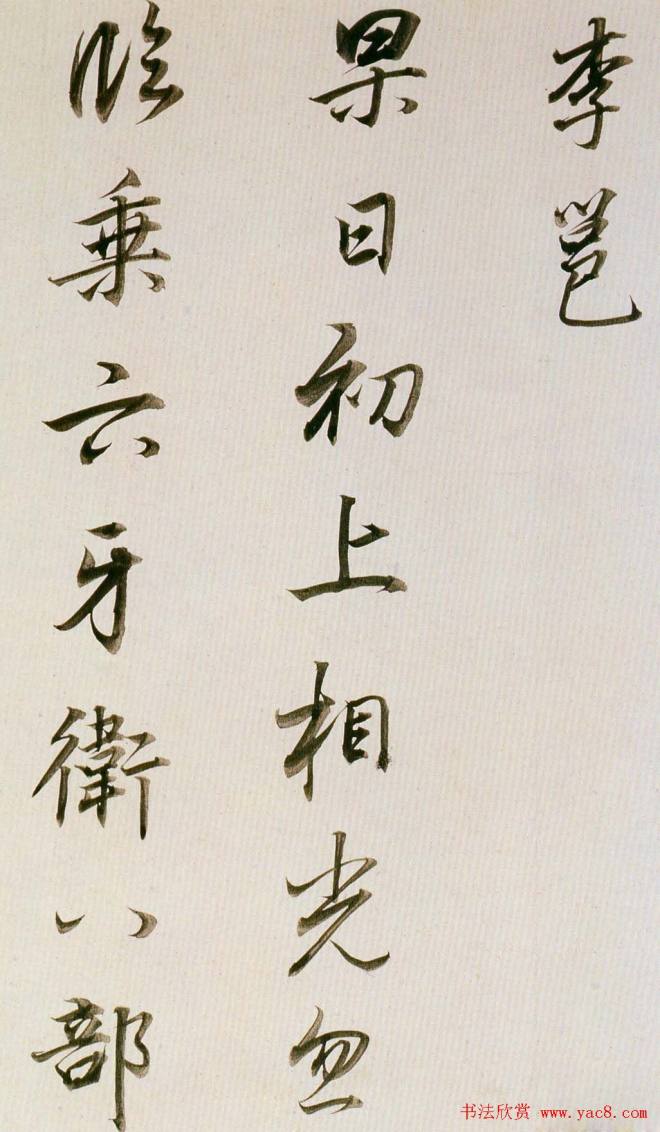 李邕
杲日初上相光忽
临乘六牙衛八部
书法欣赏 www.yac8.com